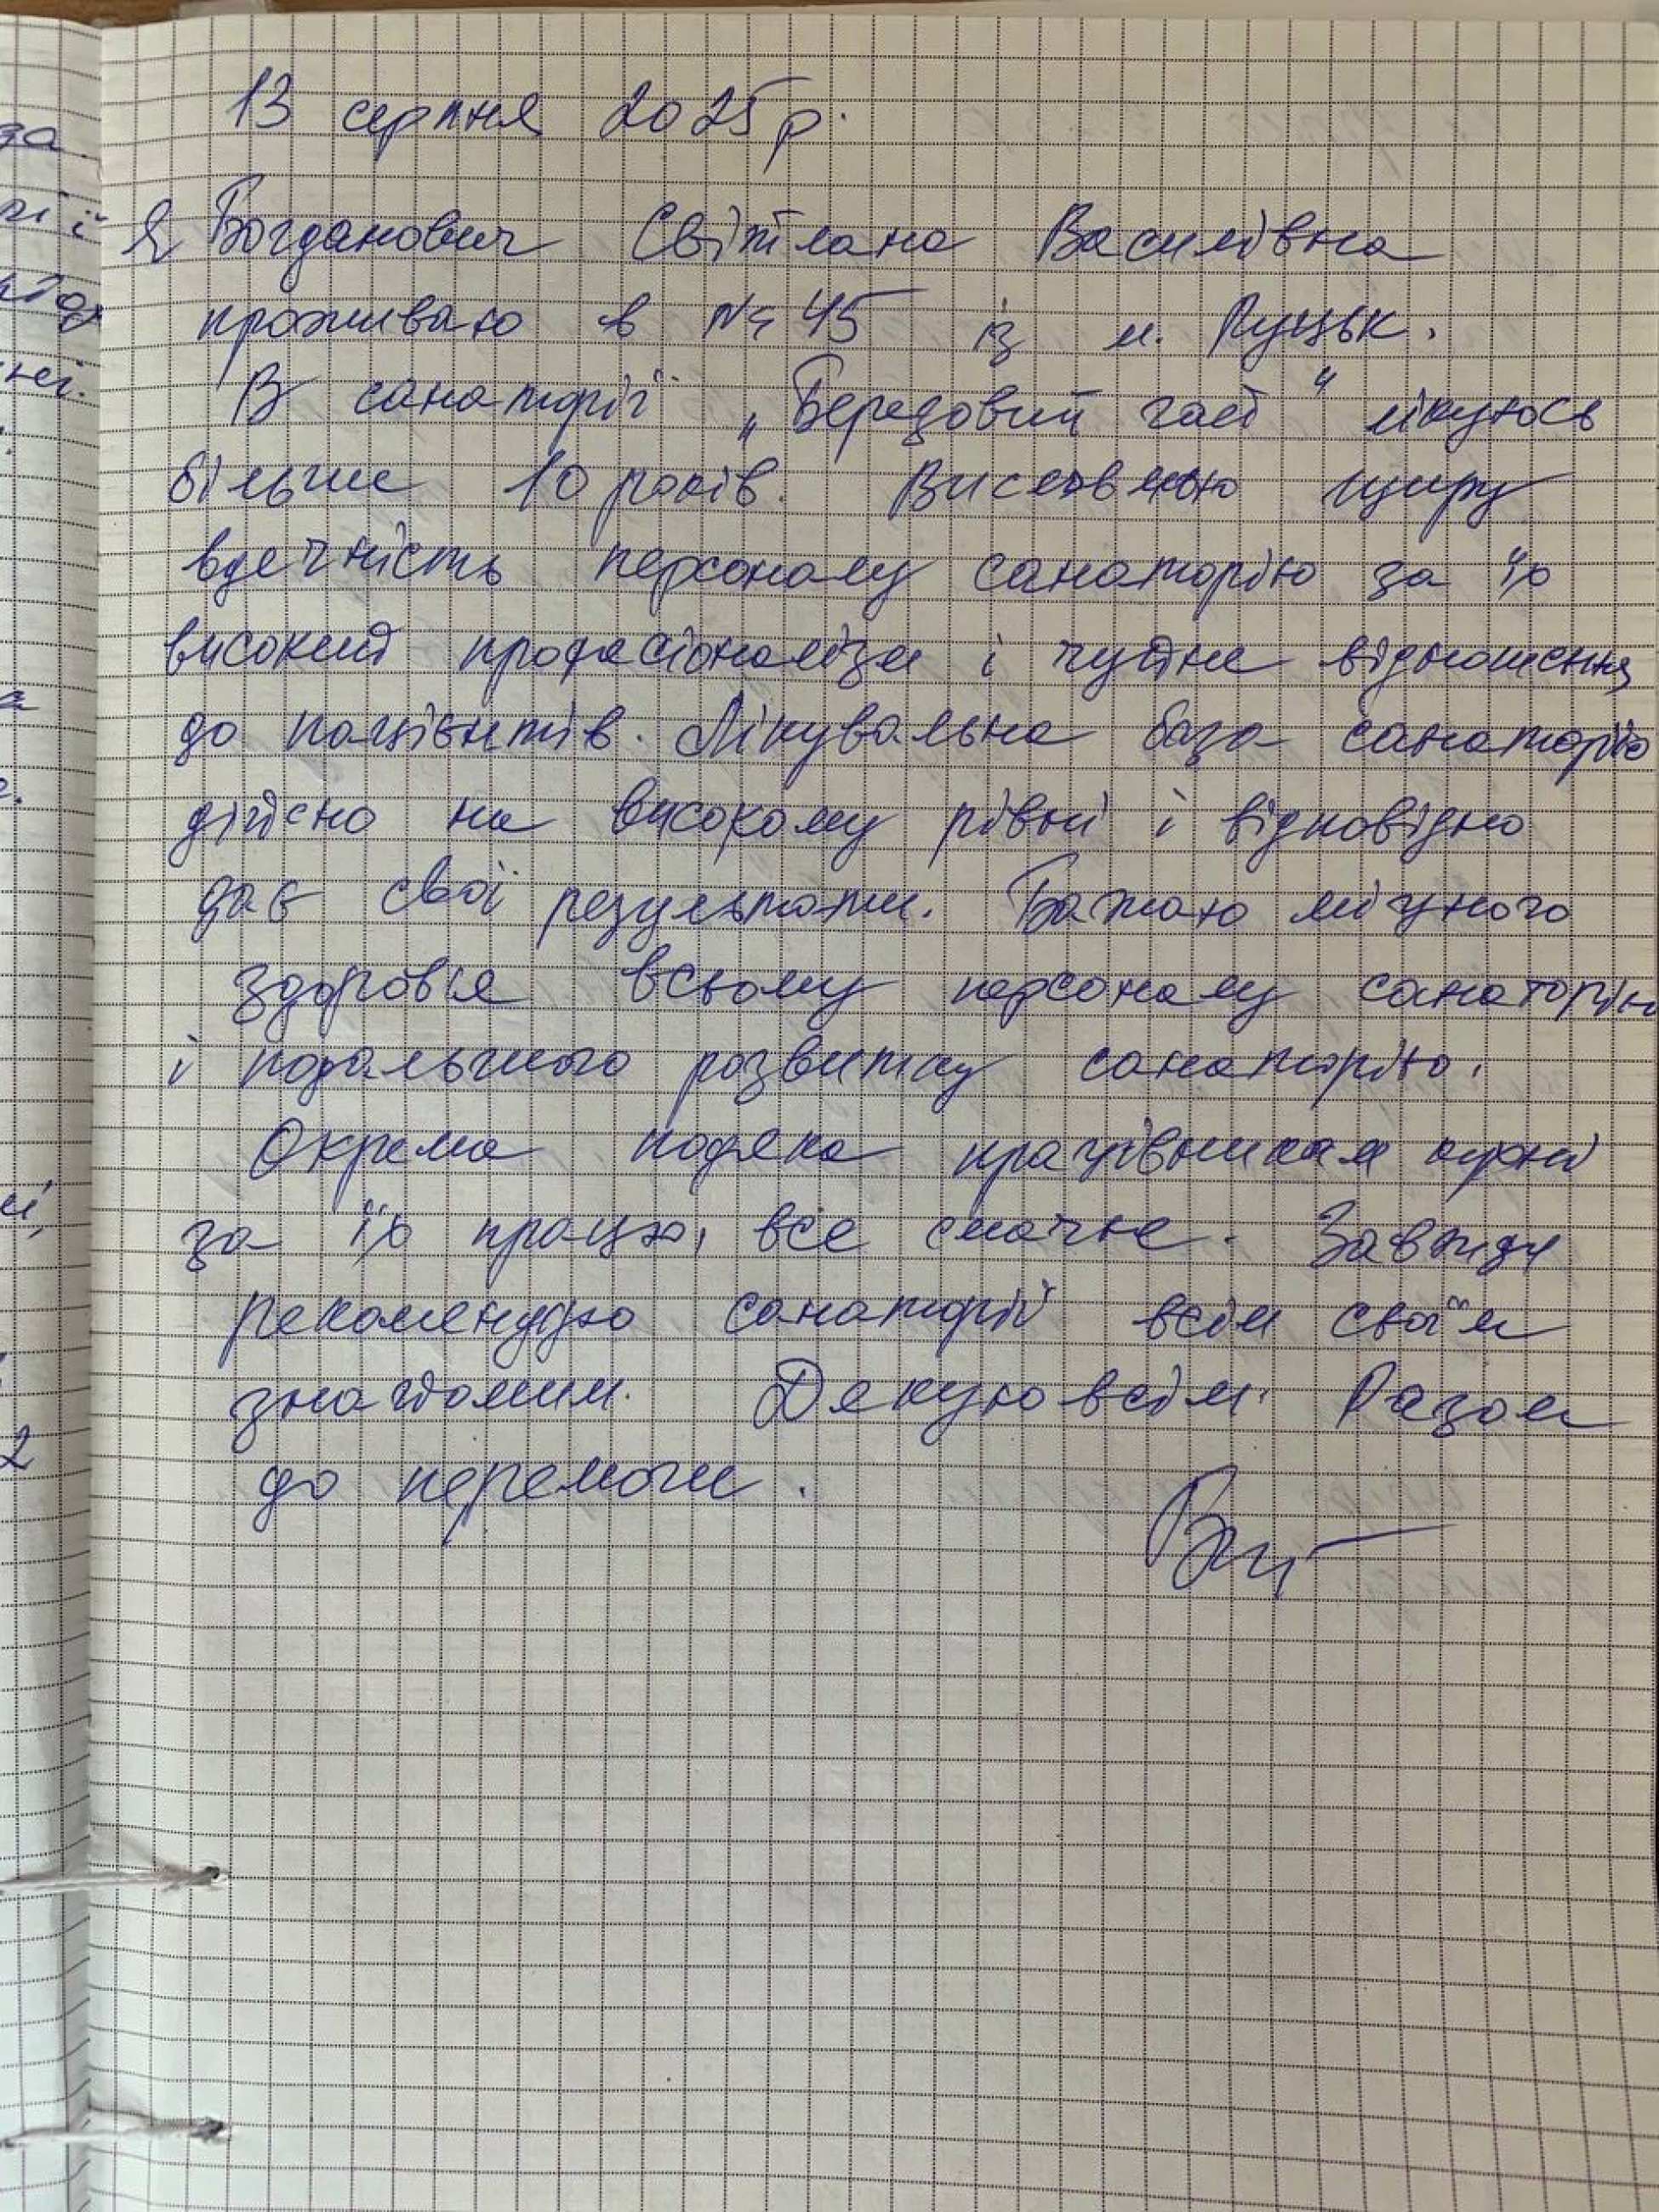 13 серпня 2025 р.
Я Богданович Світлана Василівна
проживаю в № 45 із м. Луцьк.
В санаторії „Березовий гай" лікуюсь
більше 10 років. Висловлюю щиру
вдячність персоналу санаторію за їх
високий професіоналізм і чуйне відношення
до пацієнтів. Лікувальна база санаторію
дійсно на високому рівні і відповідно
дає свої результати. Бажаю міцного
здоров'я всьому персоналу санаторію
і подальшого розвитку санаторію.
Окрема подяка працівникам кухні
за їх працю, все смачне. Завжди
рекомендую санаторій всім своїм
знайомим. Дякую всім. Разом
до перемоги.